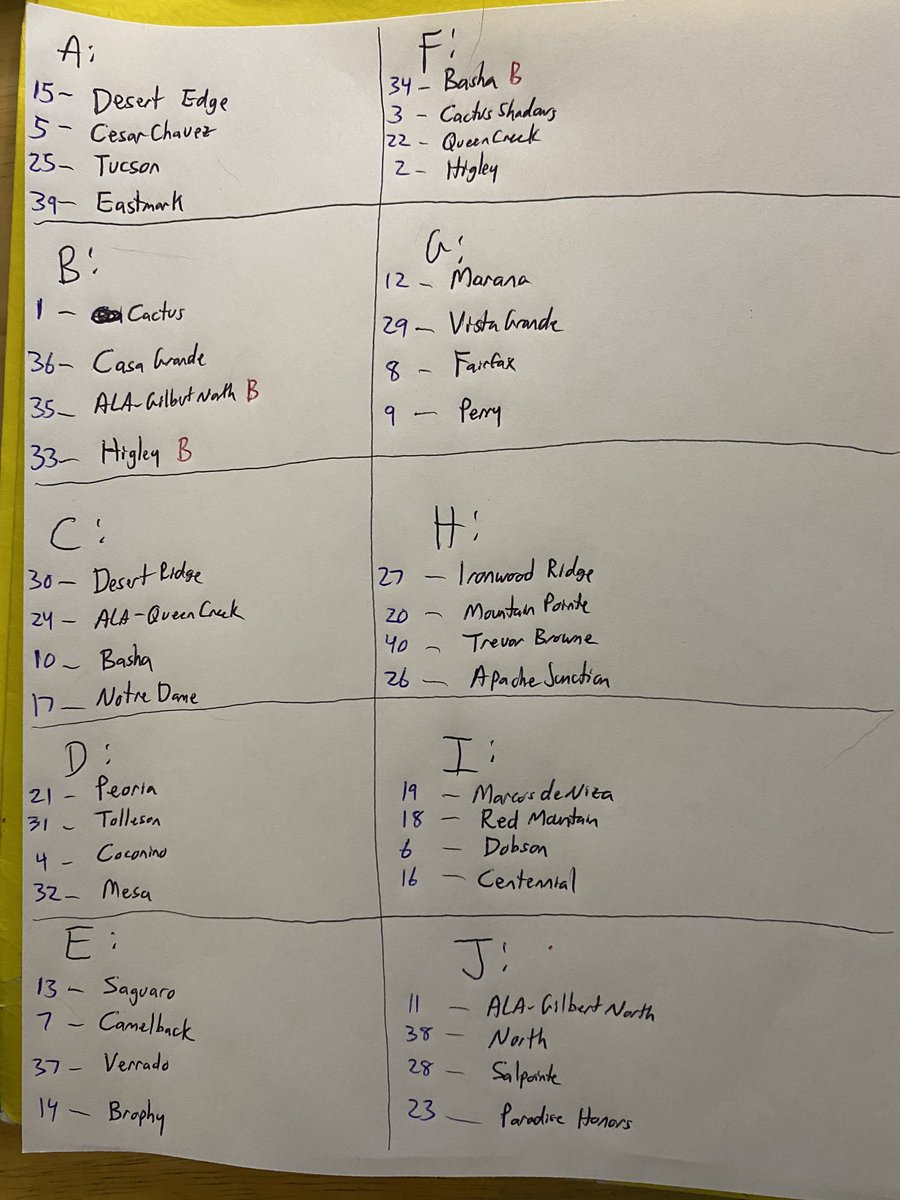 A:
15- Desert Edge
5- Cesar Chavez
25- Tucson
39- Eastmark
B:
1 - Cactus
36- Casa Grande
35- ALA-Gilbert North B
33- Higley B
C:
30- Desert Ridge
24- ALA-Queen Creek
10- Basha
17- Notre Dame
D:
21- Peoria
31- Tolleson
4- Coconino
32- Mesa
E:
13- Saguaro
7- Camelback
37- Verrado
14- Brophy
F:
34- Basha B
3- Cactus Shadows
22- Queen Creek
2- Higley
G:
12- Marana
29- Vista Grande
8- Fairfax
9- Perry
H:
27- Ironwood Ridge
20- Mountain Pointe
40- Trevor Browne
26- Apache Junction
I:
19- Marcos de Niza
18- Red Mountain
6- Dobson
16- Centennial
J:
11- ALA-Gilbert North
38- North
28- Salpointe
23- Paradise Honors